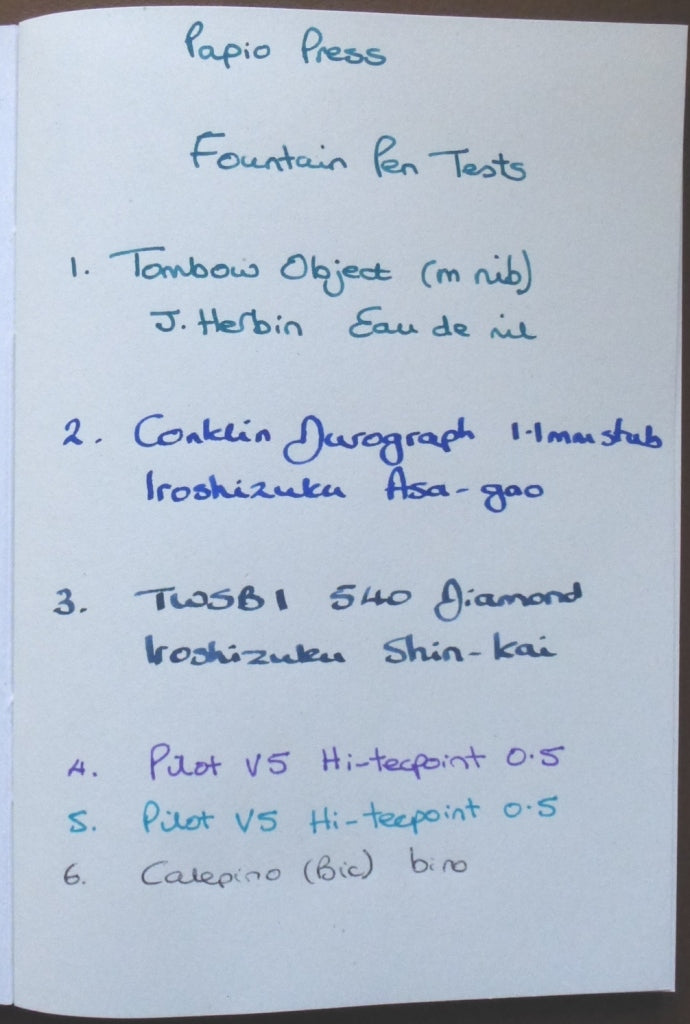 Papio Press
Fountain Pen Tests
1. Tombow Object (m nib)
J. Herbin Eau de nil
2. Conklin Durograph 1.1mm stub
Iroshizuku Asa-gao
3. TWSBI 540 Diamond
Iroshizuku Shin-kai
4. Pilot V5 Hi-tecpoint 0.5
5. Pilot V5 Hi-tecpoint 0.5
6. Calepino (Bic) biro